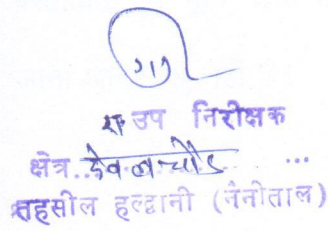 उप निरीक्षक
क्षेत्र..देवलचौड़...
तहसील हल्द्वानी (नैनीताल)